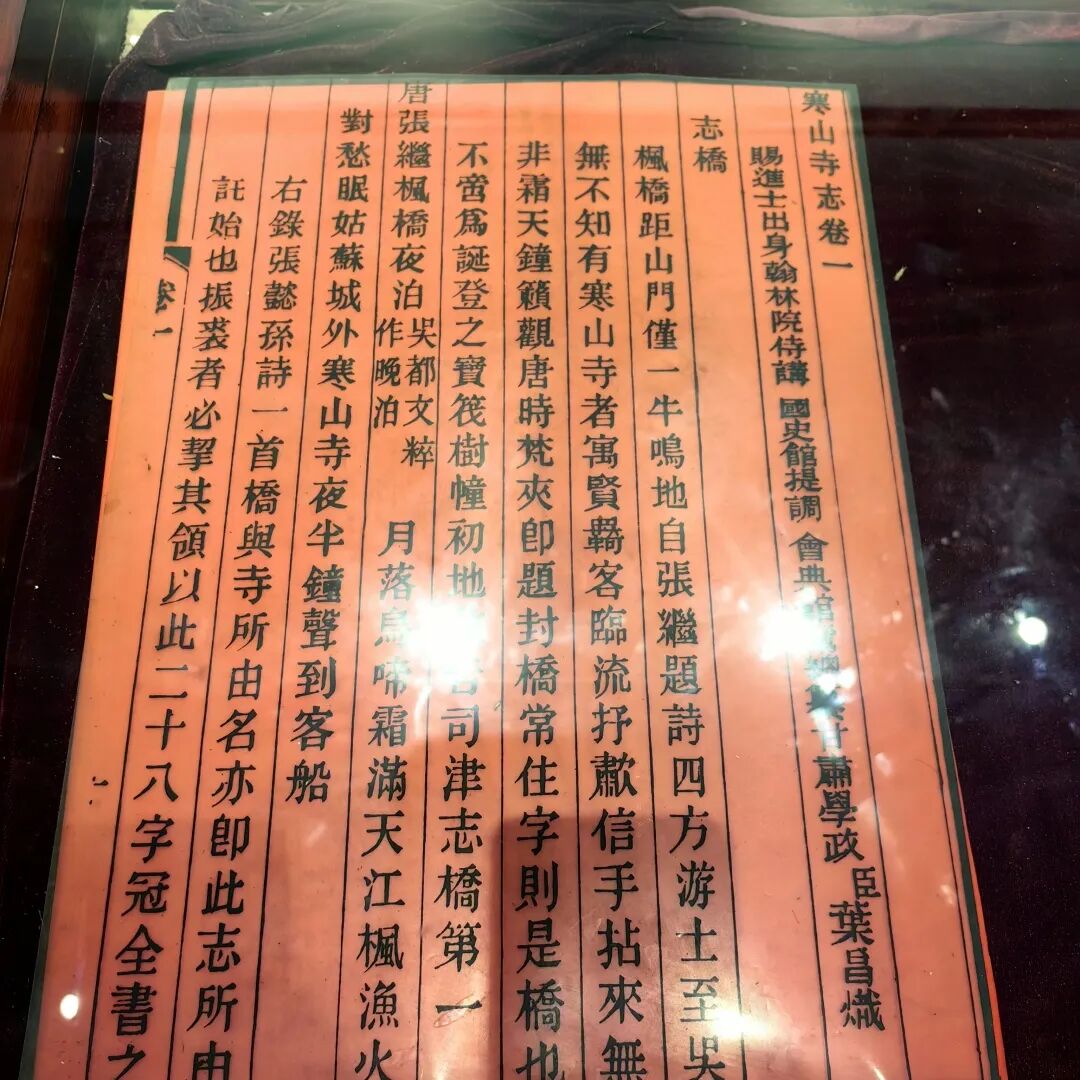 寒山寺志卷一
賜進士出身翰林院侍講 國史館提調 會典館 肅學政臣葉昌熾
志橋
楓橋距山門僅一牛鳴地自張繼題詩四方游士至吳
無不知有寒山寺者寓賢羇客臨流抒歗信手拈來無
非霜天鐘籟觀唐時梵夾卽題封橋常住字則是橋也
不啻爲誕登之寶筏樹幢初地 司津志橋第一
唐張繼楓橋夜泊吳都文粹作晚泊 月落烏啼霜滿天江楓漁火
對愁眠姑蘇城外寒山寺夜半鐘聲到客船
右錄張懿孫詩一首橋與寺所由名亦卽此志所由
託始也振裘者必挈其領以此二十八字冠全書之
卷一